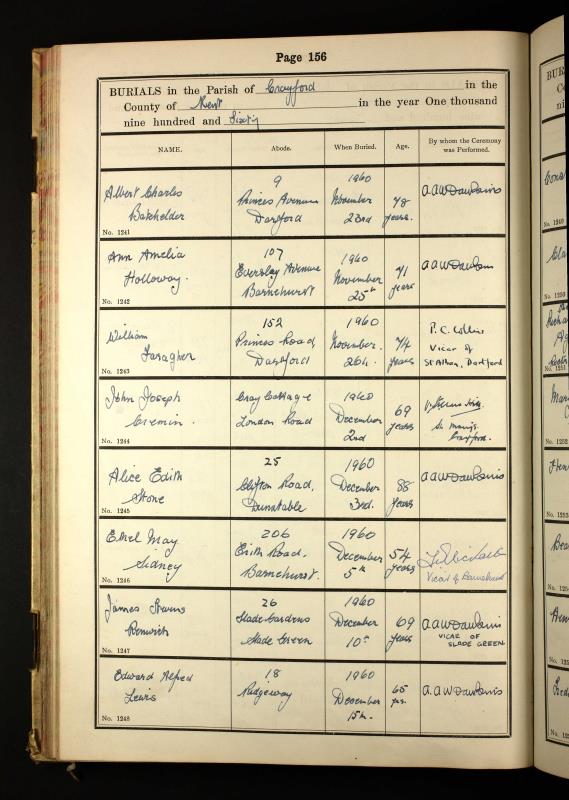 Page 156
BURIALS in the Parish of Crayford in the
County of Kent in the year One thousand
nine hundred and Sixty
NAME. Abode. When Buried. Age. By whom the Ceremony was Performed.
Albert Charles
Batchelder
No. 1241
9
Princes Avenue
Dartford
1960
November
23rd
78
years.
A A W Dawkins
Ann Amelia
Holloway.
No. 1242
107
Eversley Avenue
Barnehurst
1960
November
25th
71
years
A A W Dawkins
William
Faragher
No. 1243
152
Princes Road
Dartford
1960
November.
26th.
74
years
P. C. Collins
Vicar of
St Alban, Dartford
John Joseph
Cremin.
No. 1244
Cray Cottage
London Road
1960
December
2nd
69
years
St. Mary's
Crayford.
Alice Edith
Stone
No. 1245
25
Clifton Road,
Dunstable
1960
December
3rd.
88
years
A A W Dawkins
Ethel May
Sidney
No. 1246
206
Erith Road,
Barnehurst.
1960
December
5th
54
years
Vicar of Barnehurst
James Stevens
Renwick
No. 1247
26
Slade Gardens
Slade Green
1960
December
10th
69
years
A A W Dawkins
VICAR OF
SLADE GREEN
Edward Alfred
Lewis
No. 1248
18
Ridgeway
1960
December
15th.
65
yrs.
A. A W Dawkins